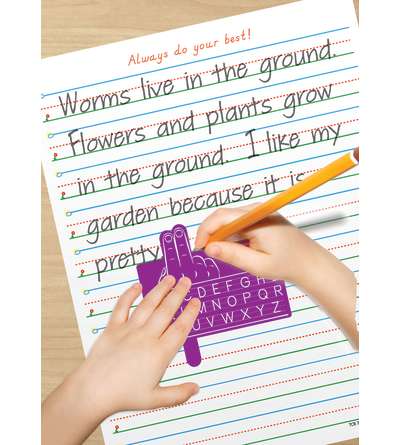 Always do your best!
Worms live in the ground.
Flowers and plants grow
in the ground. I like my
garden because it is
pretty
CDEFGH
MNOPQR
UVWXYZ